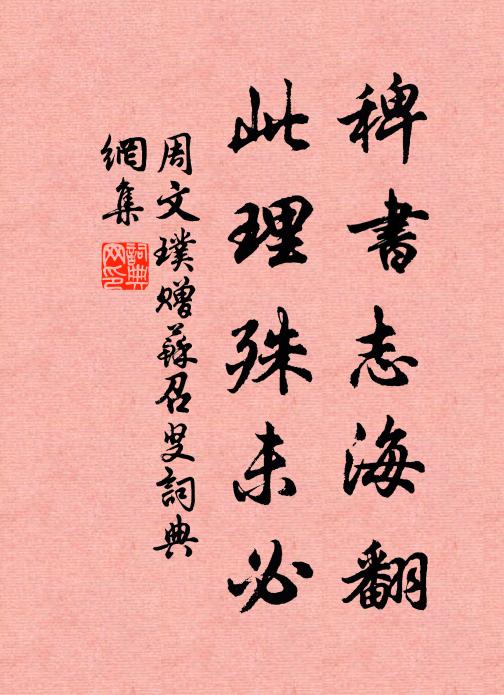 稗書志海翻
此理殊未必
周文璞贈蘇召叟詞典
網集
詞典網印